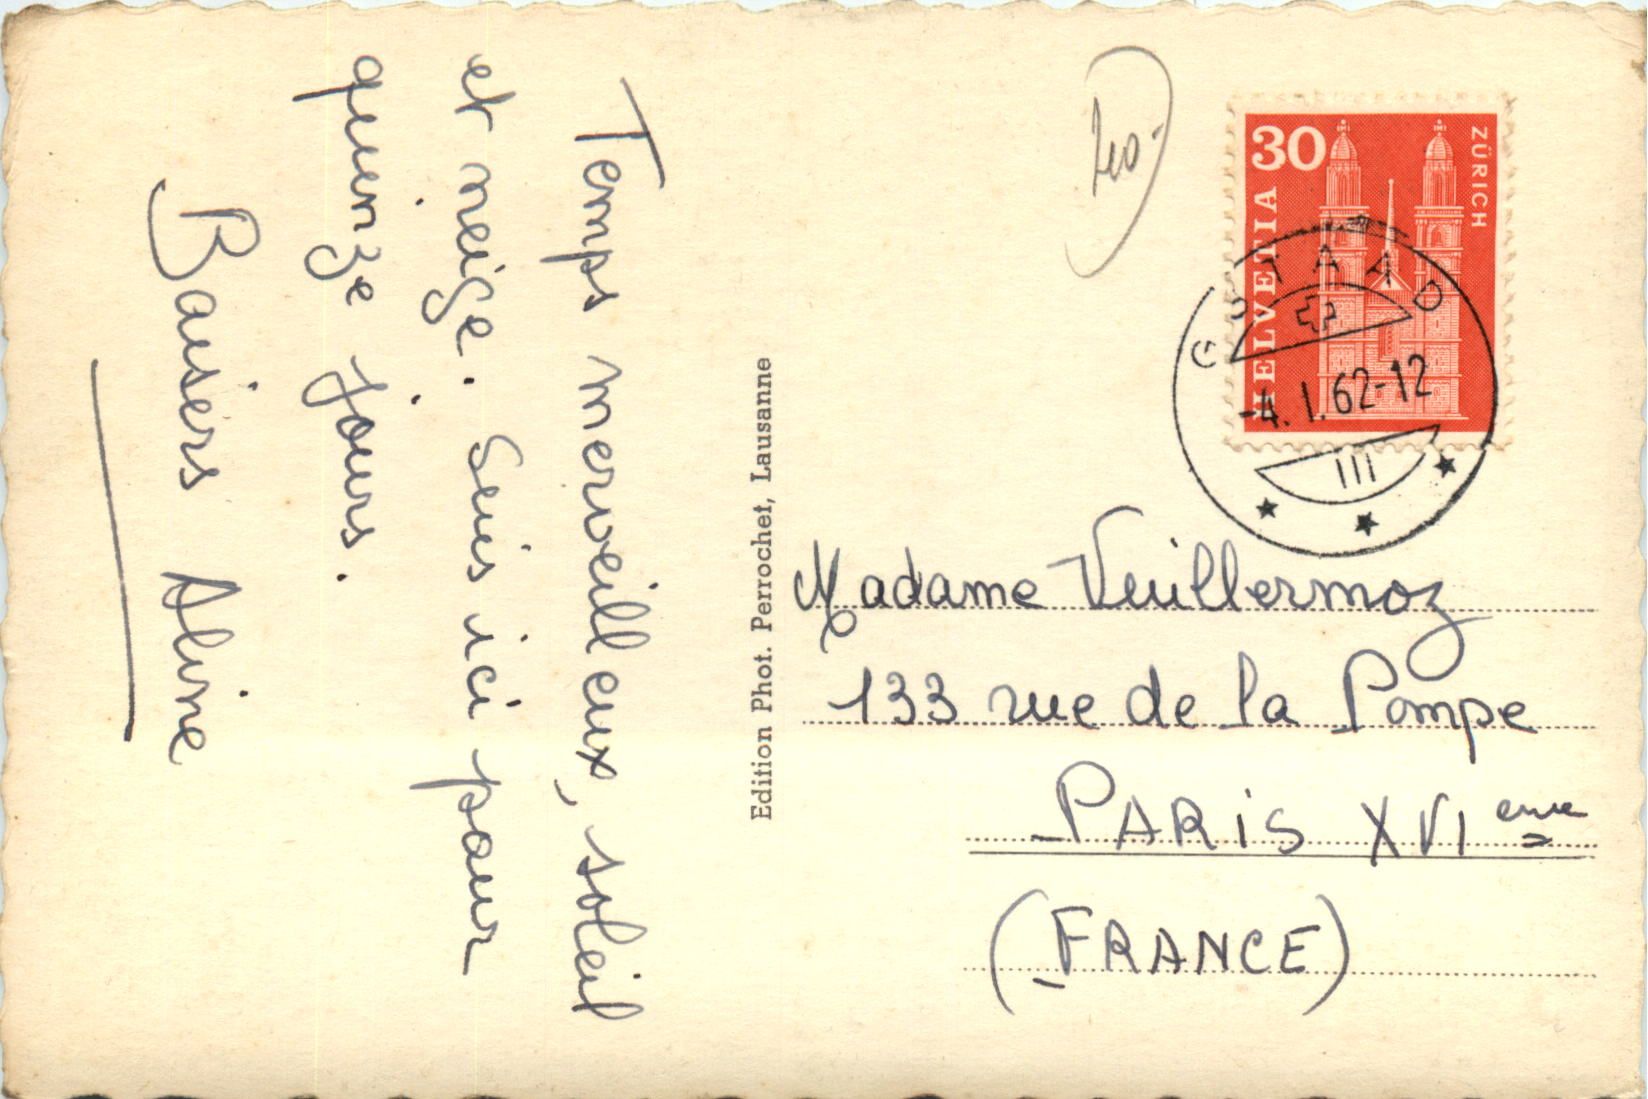 Temps merveilleux, soleil
et neige. Suis ici pour
quinze jours.
Baisers Aline
Edition Phot. Perrochet, Lausanne
30
HELVETIA
ZÜRICH
GSTAAD
-4. I. 62-12
III
Madame Vuillermoz
133 rue de la Pompe
PARIS XVIeme
(FRANCE)